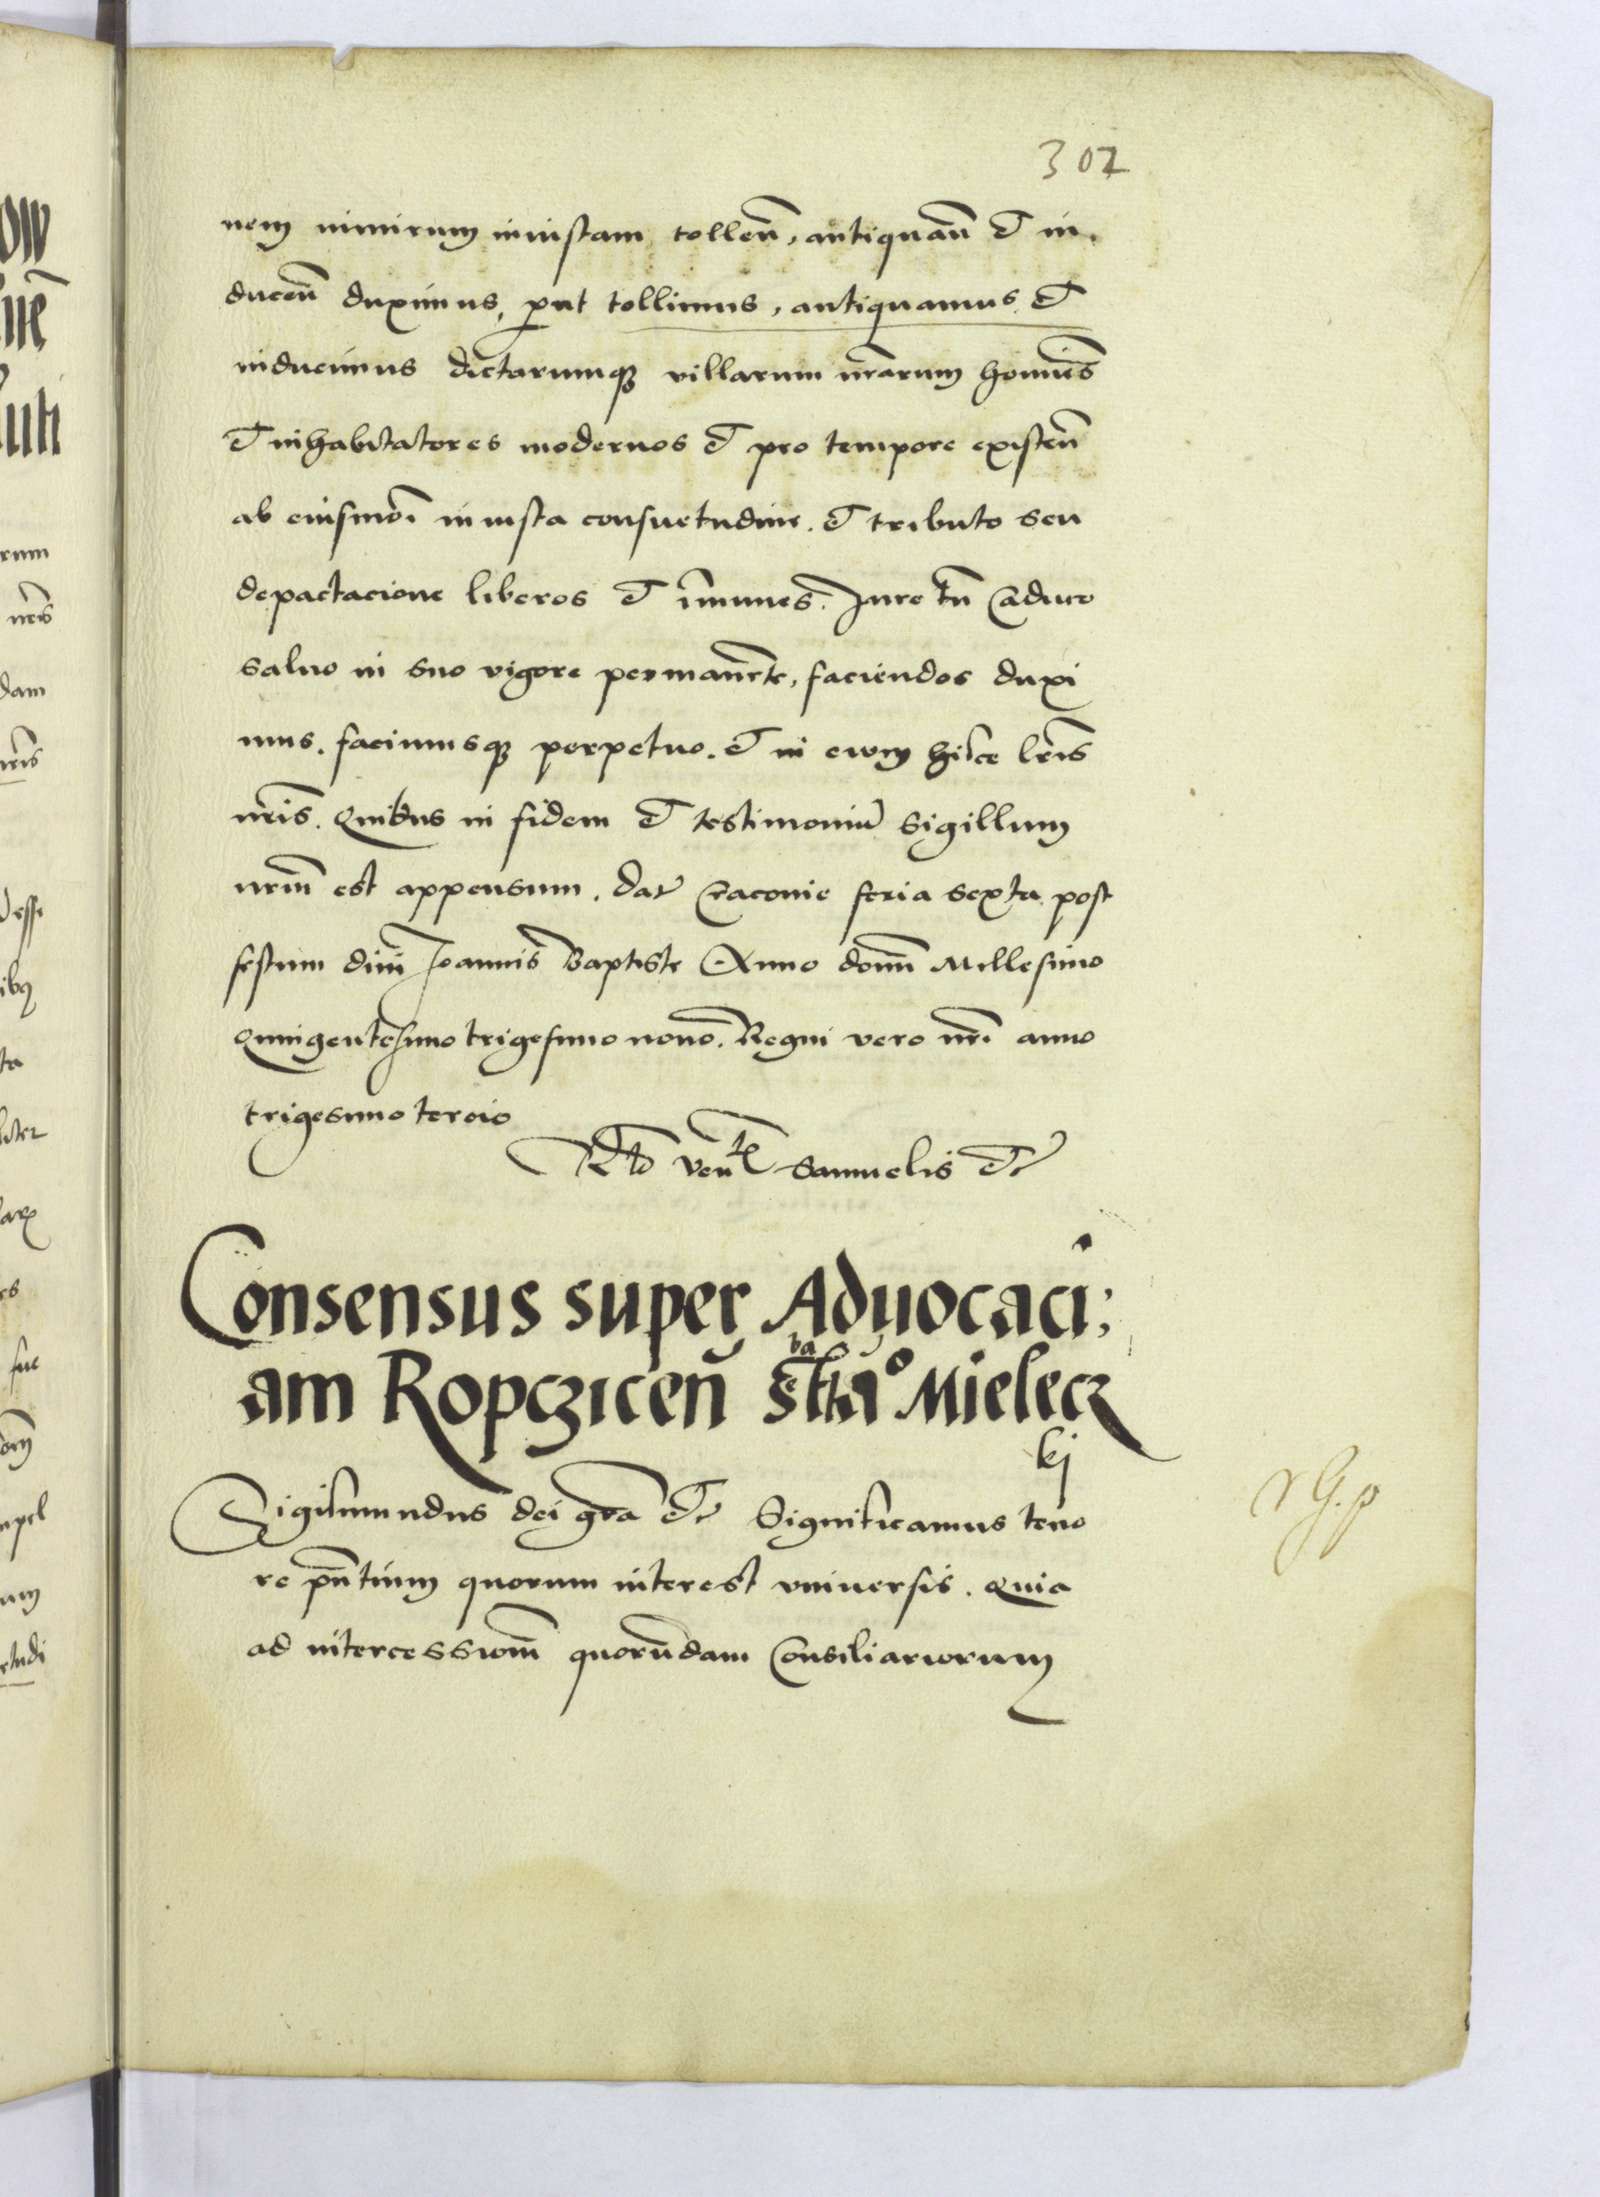 302
nem nimirum iniustam tollen̄, antiquan̄ et in,
ducen̄ duximus, put tollimus, antiquamus et
inducimus dictarumq3 villarum nr̄arum homines
et inhabitatores modernos et pro tempore existen̄
ab eiusmoi iniusta consuetudine. et tributo seu
depactacione liberos et im̄unes. Iure tn̄ Caduco
saluo in suo vigore permanen̄te, faciendos duxi
mus. facimusq3 perpetuo. et in ewm hisce lr̄is
nr̄is. Quibus in fidem et testimoniū sigillum
nr̄m est appensum. Dat Cracouie feria sexta post
festum diui Ioannis Baptiste Anno domī Millesimo
Quingentesimo trigesimo nono. Regni vero nr̄i anno
trigesimo tercio
Rtō ven̄ Samuelis etc
Consensus super Aduocaci;
am Ropcziceñ Mielecz
kj
Sigismundus dei gr̄a etc Significamus teno
re pn̄tium quorum interest vniuersis. Quia
ad intercessionē quorūdam Consiliariorum